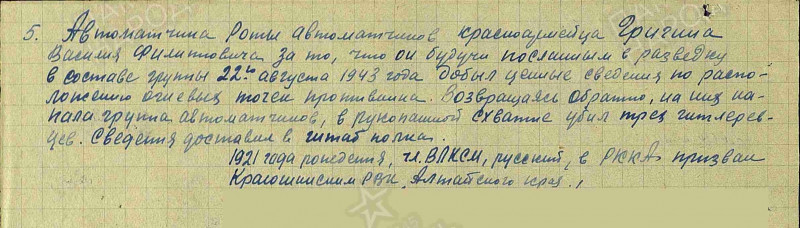 5. Автоматчика роты автоматчиков красноармейца Григина
Василия Филипповича за то, что он будучи посланным в разведку
в составе группы 22го августа 1943 года добыл ценные сведения по распо-
ложению огневых точек противника. Возвращаясь обратно, на них на-
пала группа автоматчиков, в рукопашной схватке убил трех гитлерев-
цев. Сведения доставил в штаб полка.
1921 года рождения, чл. ВЛКСМ, русский, в РККА призван
РВК, Алтайского края.